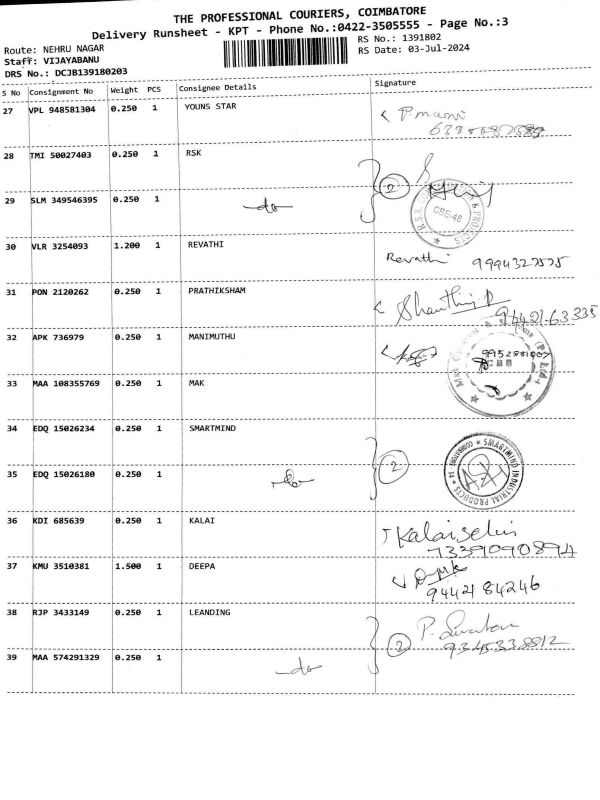 THE PROFESSIONAL COURIERS, COIMBATORE
Delivery Runsheet - KPT - Phone No.:0422-3505555 - Page No.:3
Route: NEHRU NAGAR RS No.: 1391802
Staff: VIJAYABANU RS Date: 03-Jul-2024
DRS No.: DCJB139180203
S No Consignment No Weight PCS Consignee Details Signature
27 VPL 948581304 0.250 1 YOUNS STAR
28 TMI 50027403 0.250 1 RSK 2
29 SLM 349546395 0.250 1 do
CBE-46
30 VLR 3254093 1.200 1 REVATHI Revathi
31 PON 2120262 0.250 1 PRATHIKSHAM 94421-63335
32 APK 736979 0.250 1 MANIMUTHU
33 MAA 108355769 0.250 1 MAK
34 EDQ 15026234 0.250 1 SMARTMIND 2
SMARTMIND INDUSTRIAL PRODUCTS
35 EDQ 15026180 0.250 1 do
36 KDI 685639 0.250 1 KALAI Kalaiselvi
7339090894
37 KMU 3510381 1.500 1 DEEPA
9442184246
38 RJP 3433149 0.250 1 LEANDING 2
9345338812
39 MAA 574291329 0.250 1 do